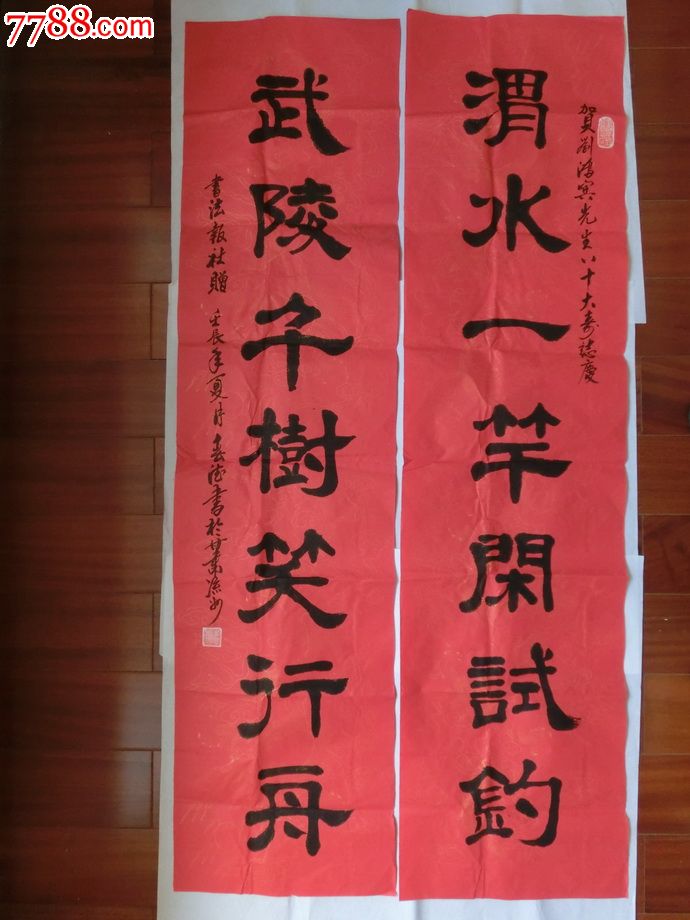 7788.com
賀劉鴻賓先生八十大壽誌慶
渭水一竿閑試釣
武陵千樹笑行舟
書法報社贈 壬辰年夏月
書於甘肅涼州